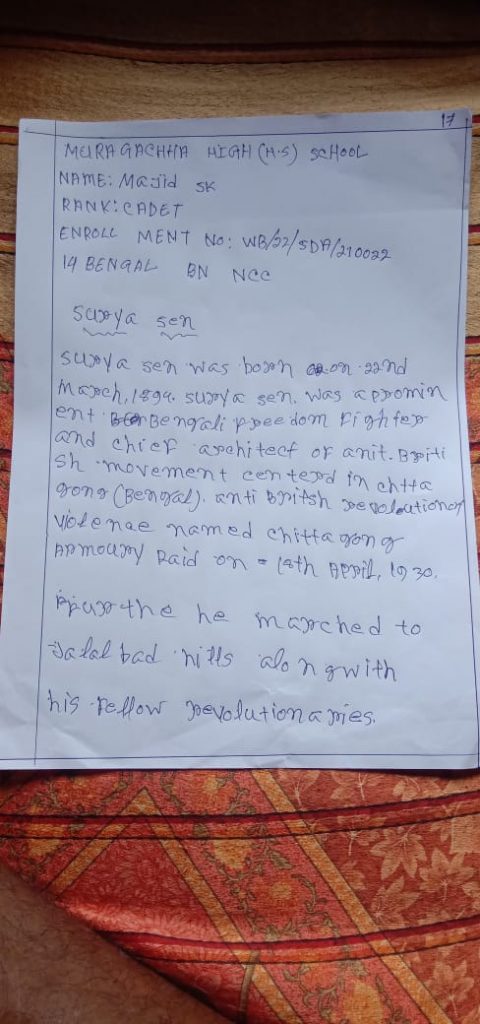 17
MURAGACHHA HIGH (H.S) SCHOOL
NAME: Majid SK
RANK: CADET
ENROLL MENT NO: WB/22/SDA/210022
14 BENGAL BN NCC
Surya sen
Surya sen was born on 22nd
March, 1894. Surya sen. was a promin
ent Bengali Freedom Fighter
and chief architect of anit. Briti
sh movement centerd in chtta
gong (Bengal). anti Britsh revolutionary
violenae named chittagong
Armoury Raid on 18th April, 1930.
he marched to
Jalalbad hills alongwith
his fellow revolutionaries.